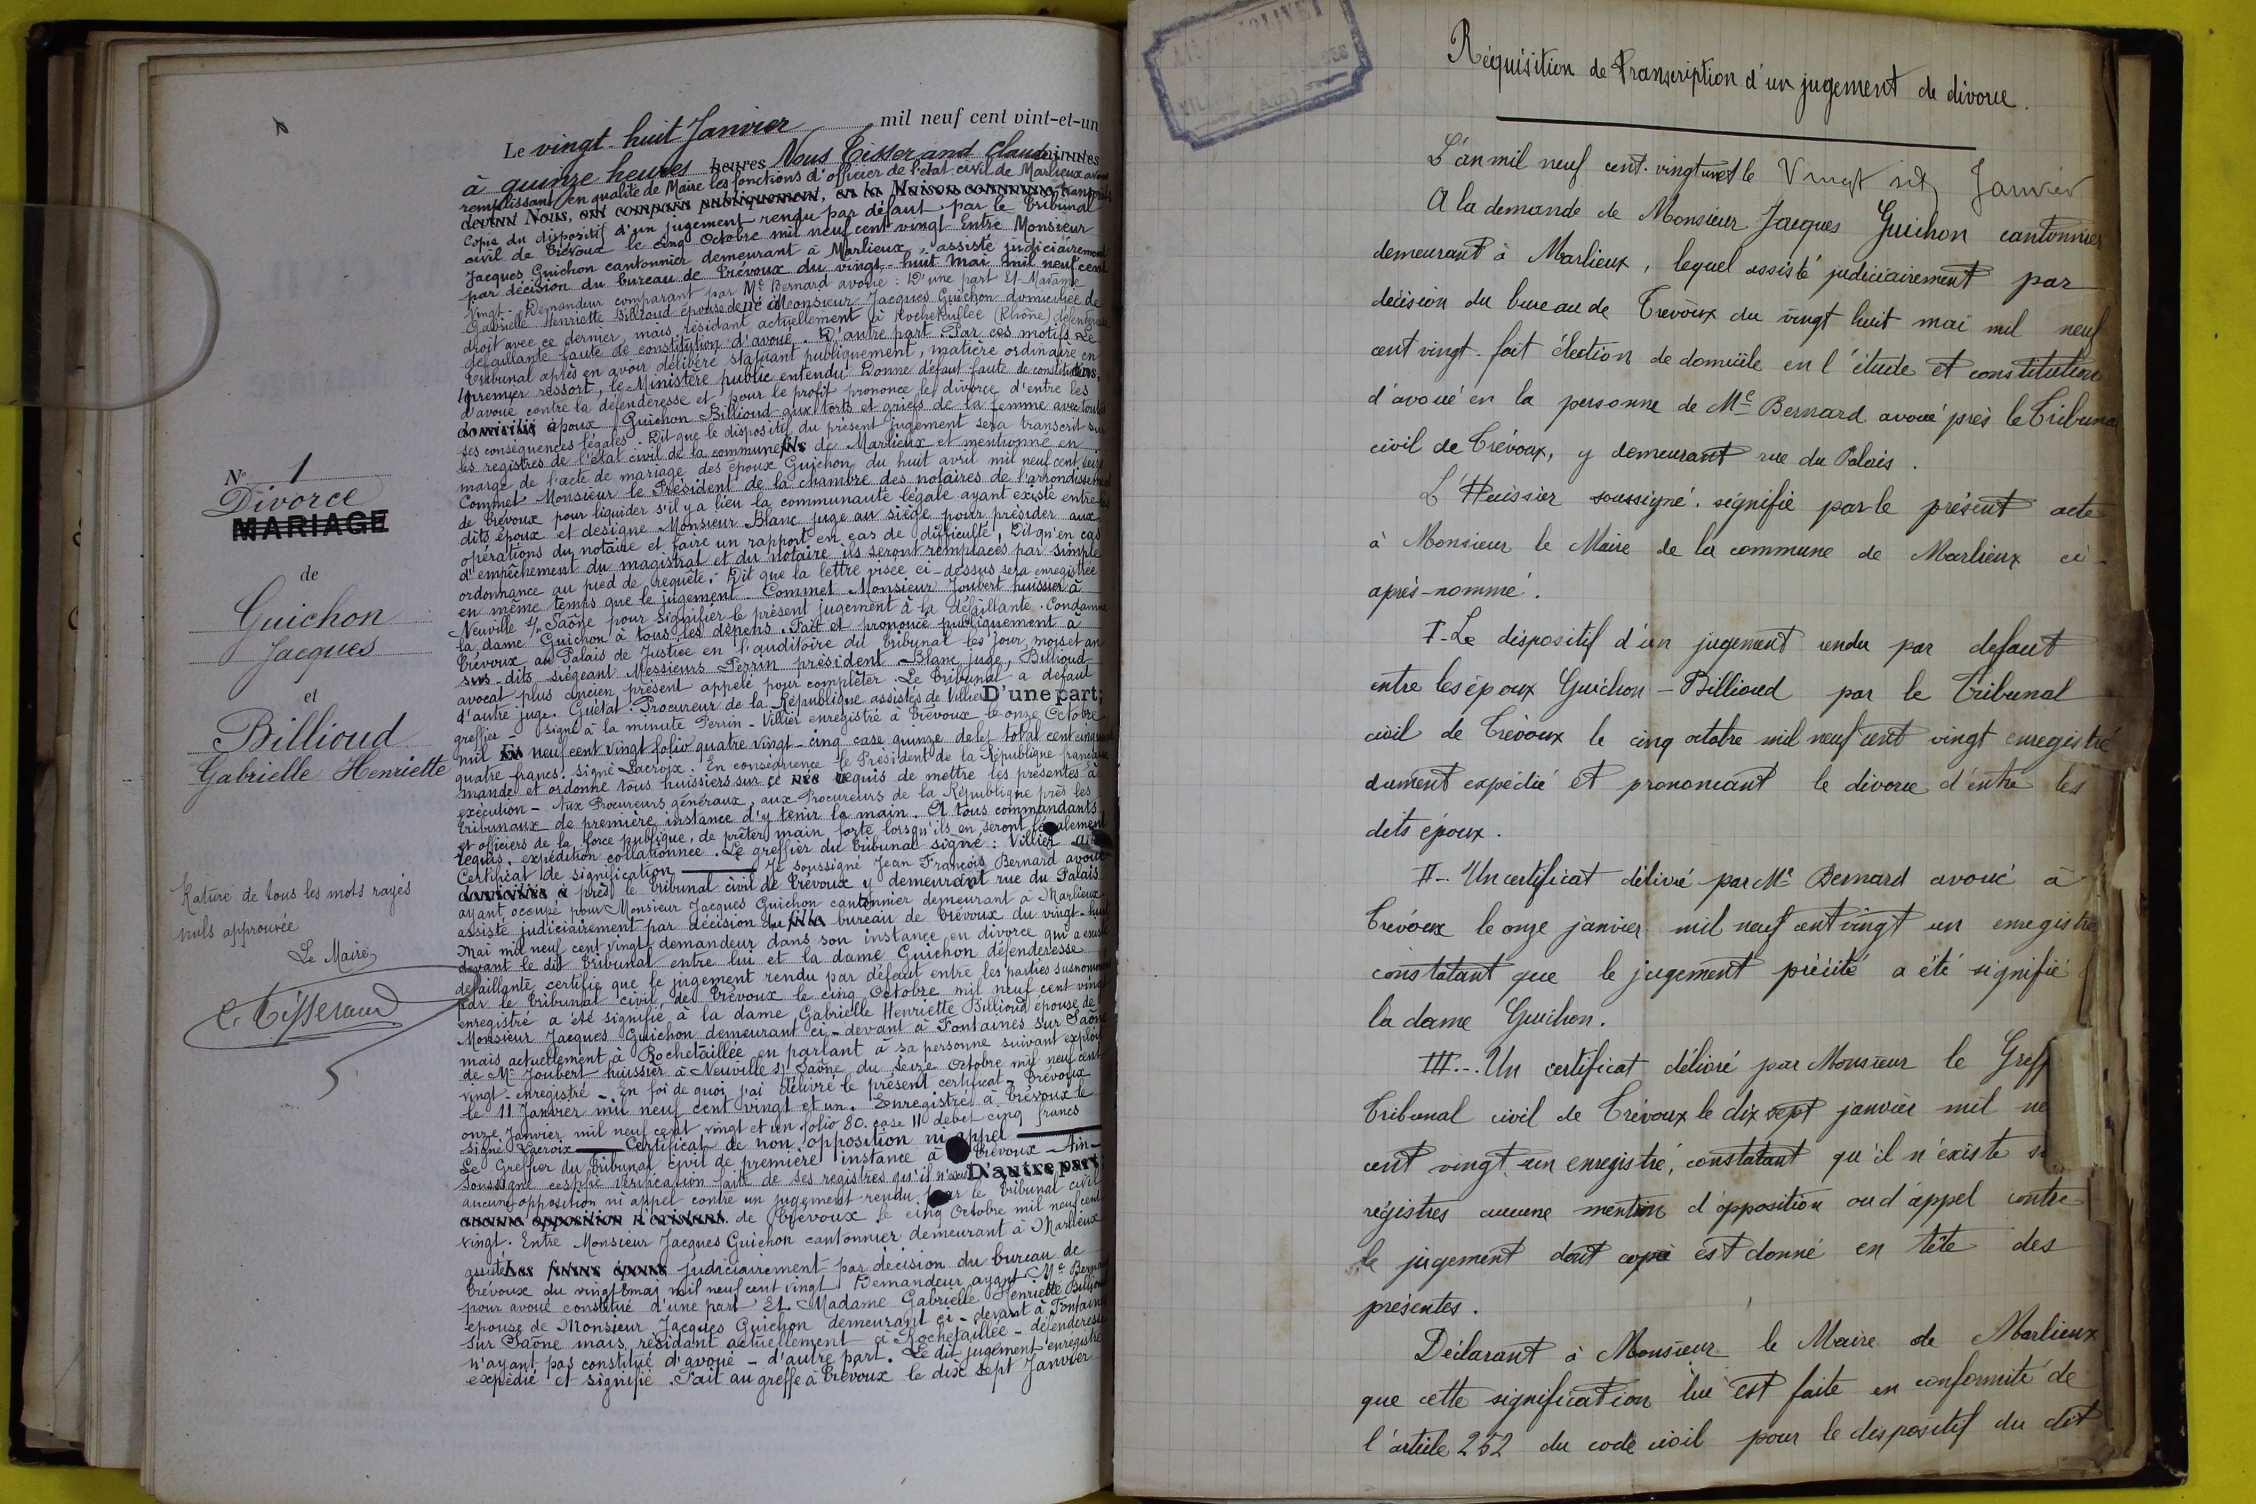 Le vingt-huit Janvier mil neuf cent vint-et-un
à quinze heures heures Nous Tisserand Claude
remplissant en qualité de Maire les fonctions d'officier de l'état civil de Marlieux avons
devant Nous, ont comparu publiquement, en la Maison commune,
Copie du dispositif d'un jugement rendu par défaut, par le Tribunal
civil de Trévoux le cinq Octobre mil neuf cent vingt Entre Monsieur
Jacques Guichon cantonnier demeurant à Marlieux, assisté judiciairement
par décision du bureau de Trévoux du vingt-huit mai mil neuf cent
vingt - Demandeur comparant par Me Bernard avoué : D'une part Et Madame
Gabrielle Henriette Billioud épouse de né à Monsieur Jacques Guichon domiciliée de
droit avec ce dernier, mais résidant actuellement à Rochetaillée (Rhône) défenderesse
défaillante faute de constitution d'avoué. D'autre part Par ces motifs Le
Tribunal après en avoir délibéré statuant publiquement, matière ordinaire en
premier ressort, le Ministère public entendu Donne défaut faute de constitution
d'avoué contre la défenderesse et pour le profit prononce le divorce d'entre les
domicilié à époux Guichon-Billioud aux torts et griefs de la femme avec toutes
ses conséquences légales. Dit que le dispositif du présent jugement sera transcrit sur
les registres de l'état civil de la commune fils de Marlieux et mentionné en
marge de l'acte de mariage des époux Guichon du huit avril mil neuf cent seize
Commet Monsieur le Président de la chambre des notaires de l'arrondissement
de Trévoux pour liquider s'il y a lieu la communauté légale ayant existé entre les
dits époux et désigne Monsieur Blanc juge au siège pour présider aux
opérations du notaire et faire un rapport en cas de difficulté, Dit qu'en cas
d'empêchement du magistrat et du notaire ils seront remplacés par simple
ordonnance au pied de requête. Dit que la lettre visée ci-dessus sera enregistrée
en même temps que le jugement - Commet Monsieur Joubert huissier à
Neuville s/ Saône pour signifier le présent jugement à la défaillante. Condamne
la dame Guichon à tous les dépens. Fait et prononcé publiquement à
Trévoux au Palais de Justice en l'auditoire du Tribunal les jour, mois et an
sus-dits, siégeant Messieurs Perrin président Blanc juge, Billioud
avocat plus ancien présent appelé pour compléter Le Tribunal a défaut
d'autre juge. Guétat Procureur de la République assistés de Villier D'une part;
greffier - signé à la minute Perrin - Villier enregistré à Trévoux le onze Octobre
mil Et neuf cent vingt folio quatre vingt-cinq case quinze debet total cent cinquante
quatre francs. signé Lacroix. En conséquence le Président de la République française
mande et ordonne tous huissiers sur ce née requis de mettre les présentes à
exécution - Aux Procureurs généraux, aux Procureurs de la République près les
Tribunaux de première instance d'y tenir la main. A tous commandants
et officiers de la force publique, de prêter main forte lorsqu'ils en seront légalement
requis, expédition collationnée. Le greffier du Tribunal signé : Villier
Certificat de signification Je soussigné Jean François Bernard avoué
domiciliée à près le Tribunal civil de Trévoux y demeurant rue du Palais
ayant occupé pour Monsieur Jacques Guichon cantonnier demeurant à Marlieux
assisté judiciairement par décision du fille bureau de Trévoux du vingt-huit
Mai mil neuf cent vingt demandeur dans son instance en divorce qui a existé
devant le dit Tribunal entre lui et la dame Guichon défenderesse
défaillante certifie que le jugement rendu par défaut entre les parties susnommées
par le Tribunal civil de Trévoux le cinq Octobre mil neuf cent vingt
enregistré a été signifié à la dame Gabrielle Henriette Billioud épouse de
Monsieur Jacques Guichon demeurant ci-devant à Fontaines sur Saône
mais actuellement à Rochetaillée en parlant à sa personne suivant exploit
de Me Joubert huissier à Neuville s/ Saône du seize Octobre mil neuf cent
vingt - enregistré - En foi de quoi j'ai délivré le présent certificat - Trévoux
le 11 Janvier mil neuf cent vingt et un. Enregistré à Trévoux le
onze Janvier mil neuf cent vingt et un folio 80. case 11 debet cinq francs
signé Lacroix Certificat de non opposition ni appel
Le Greffier du Tribunal civil de première instance à Trévoux - Ain -
soussigné certifie vérification faite de ses registres qu'il n'existe D'autre part
aucune opposition ni appel contre un jugement rendu par le Tribunal civil
aucune opposition n'existant. de Trévoux le cinq Octobre mil neuf cent
vingt. Entre Monsieur Jacques Guichon cantonnier demeurant à Marlieux
assisté Les futurs époux judiciairement par décision du bureau de
Trévoux du vingt 8 mai mil neuf cent vingt Demandeur ayant Me Bernard
pour avoué constitué d'une part Et Madame Gabrielle Henriette Billioud
épouse de Monsieur Jacques Guichon demeurant ci-devant à Fontaines
sur Saône mais résidant actuellement à Rochetaillée - défenderesse
n'ayant pas constitué d'avoué - d'autre part. Le dit jugement enregistré
expédié et signifié. Fait au greffe à Trévoux le dix sept Janvier
No 1
Divorce
MARIAGE
de
Guichon
Jacques
et
Billioud
Gabrielle Henriette
Rature de tous les mots rayés
nuls approuvée
Le Maire
C. Tisserand
Réquisition de Transcription d'un jugement de divorce.
L'an mil neuf cent vingt un et le Vingt six Janvier
A la demande de Monsieur Jacques Guichon cantonnier
demeurant à Marlieux, lequel assisté judiciairement par
décision du bureau de Trévoux du vingt huit mai mil neuf
cent vingt. fait élection de domicile en l'étude et constitution
d'avoué en la personne de Me Bernard avoué près le Tribunal
civil de Trévoux, y demeurant rue du Palais.
L'Huissier soussigné. signifie par le présent acte
à Monsieur le Maire de la commune de Marlieux ci-
après-nommé.
I - Le dispositif d'un jugement rendu par defaut
entre les époux Guichon - Billioud par le Tribunal
civil de Trévoux le cinq octobre mil neuf cent vingt enregistré
dument expédié et prononcant le divorce d'entre les
dits époux.
II - Un certificat délivré par Me Bernard avoué à
Trévoux le onze janvier mil neuf cent vingt un enregistré
constatant que le jugement précité a été signifié
la dame Guichon.
III.-. Un certificat délivré par Monsieur le Greff
Tribunal civil de Trévoux le dix sept janvier mil ne
cent vingt un enregistré, constatant qu'il n'existe s
régistres aucune mention d'opposition ou d'appel contre
le jugement dont copie est donné en tête des
présentes.
Déclarant à Monsieur le Maire de Marlieux
que cette signification lui est faite en conformité de
l'article 252 du code civil pour le dispositif du dit